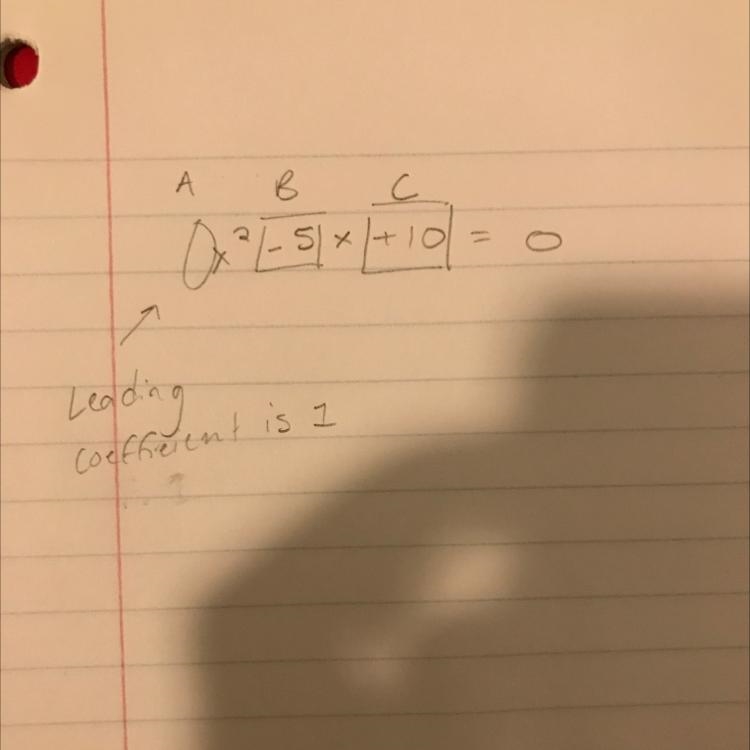 A B C
x² -5 x +10 = 0
Leading
coefficient is 1